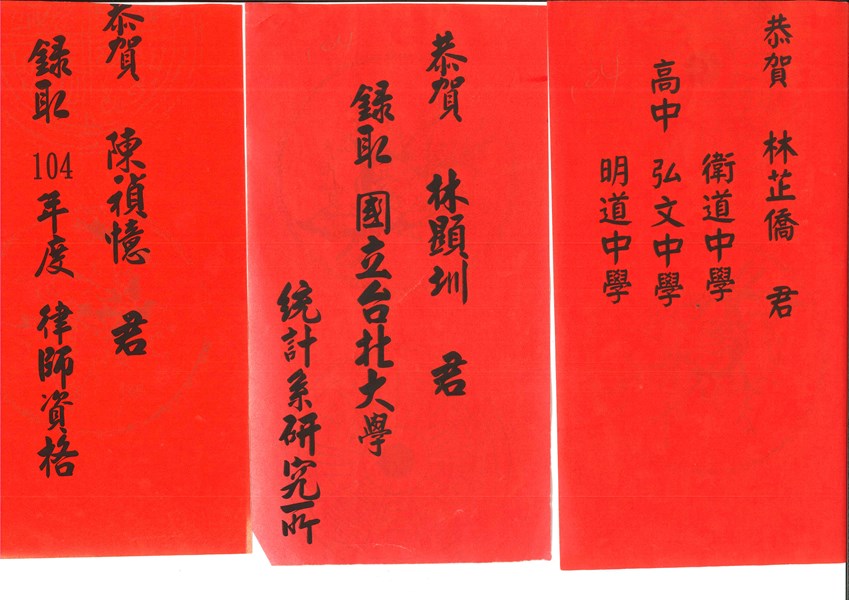 恭賀 林芷僑 君
衛道中學
高中 弘文中學
明道中學
恭賀 林顯圳 君
錄取 國立台北大學
統計系研究所
恭賀 陳禎憶 君
錄取 104 年度 律師資格